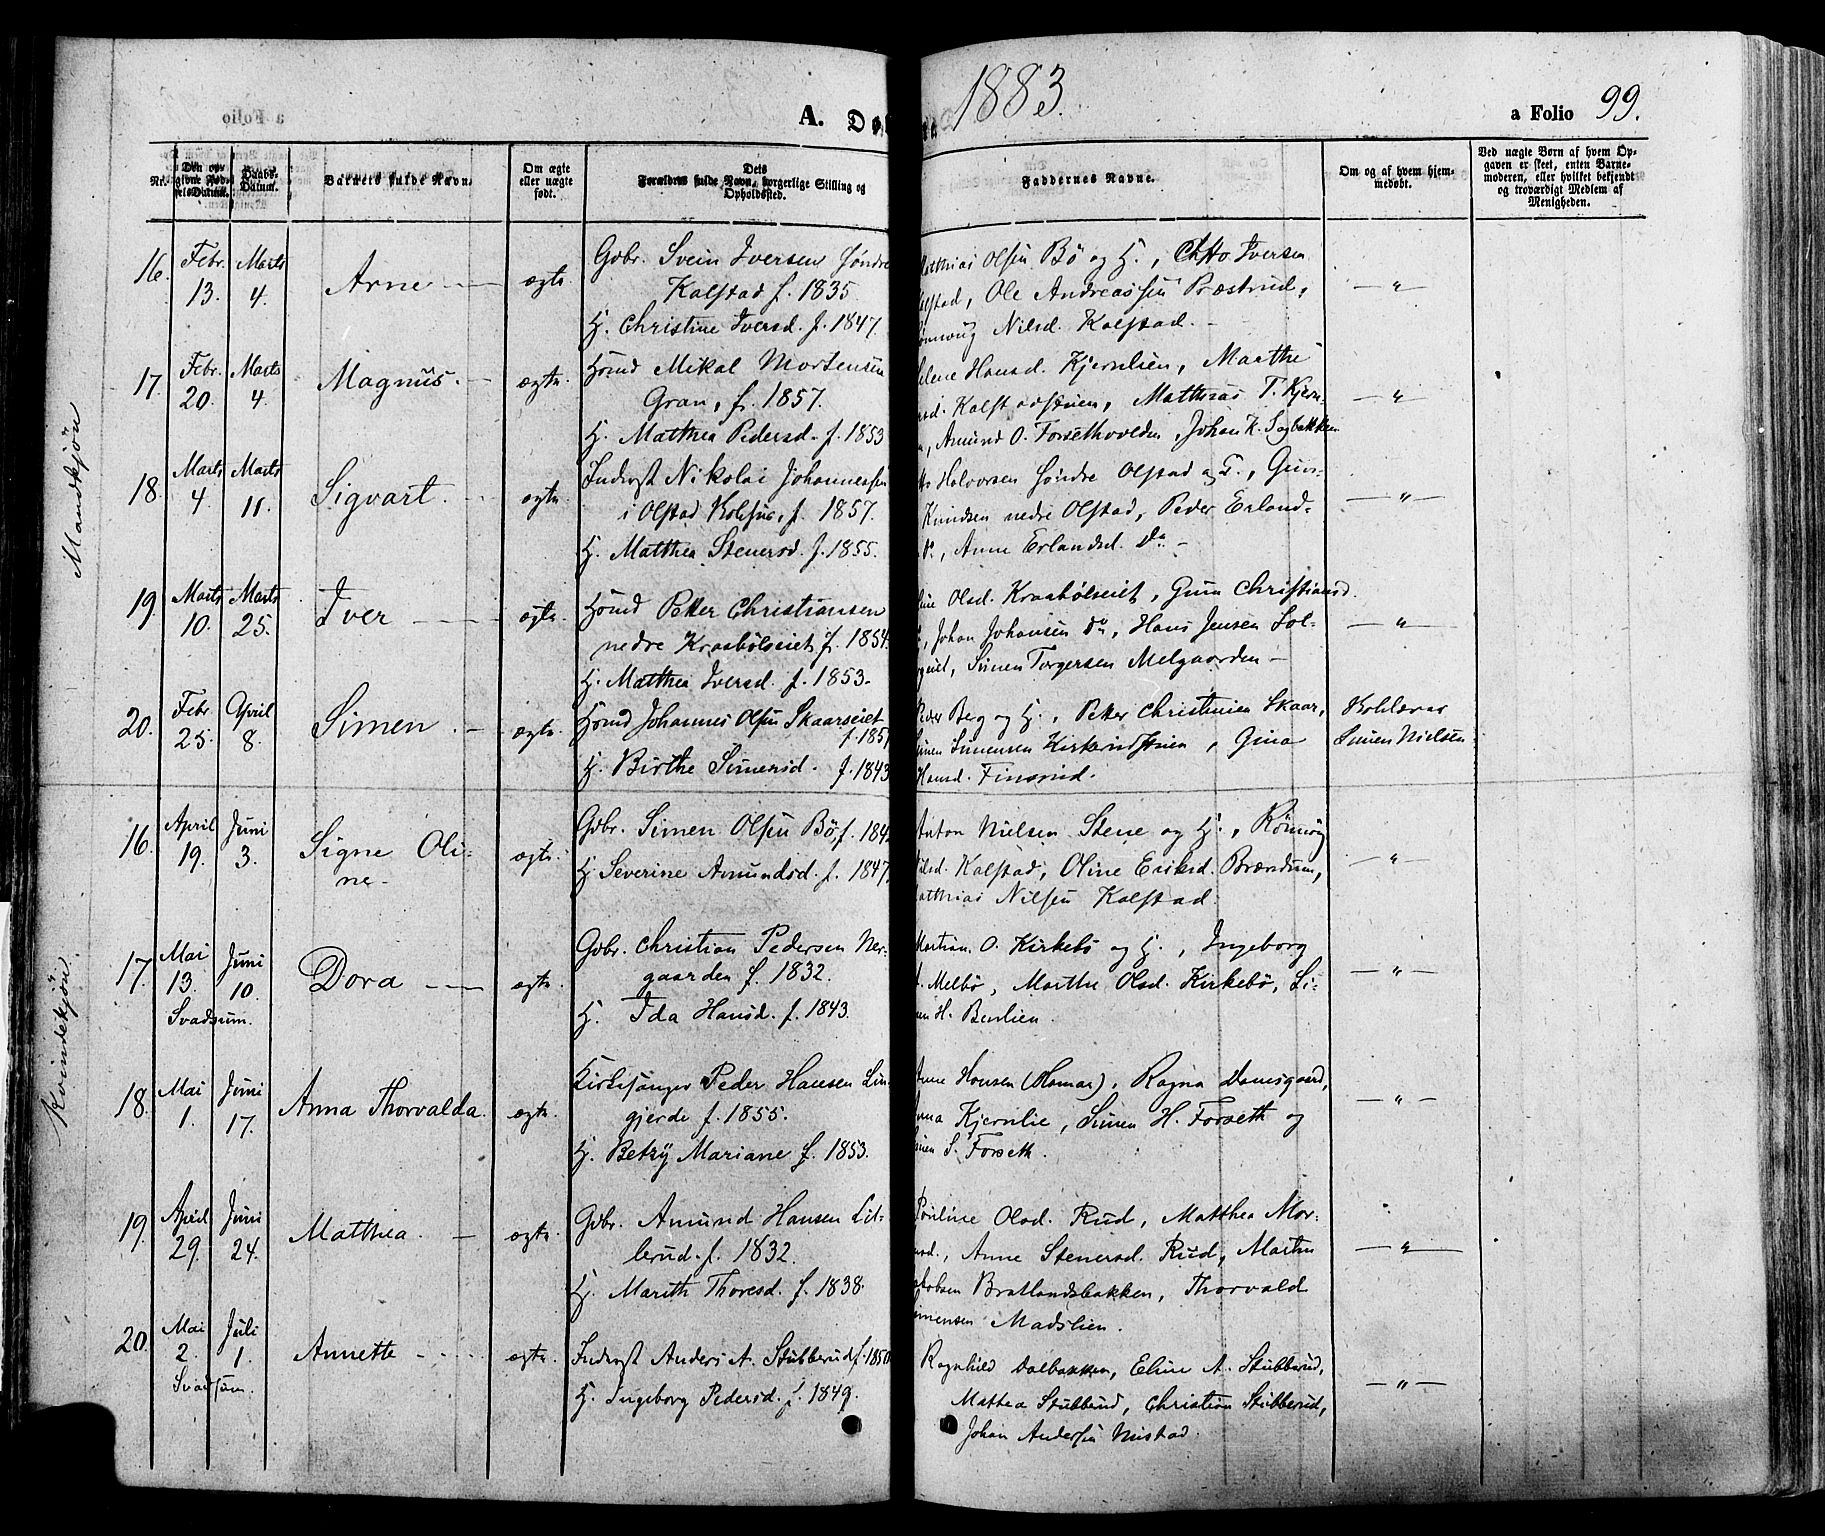 A. Dø
1883.
a Folio 99.
Nr.
Den op-
givne Fød-
selsDatum.
Daabs-
Datum.
Barnets fulde Navn.
Om ægte
eller uægte
født.
Dets
Forældres fulde Navn, borgerlige Stilling og
Opholdssted.
Faddernes Navne.
Om og af hvem hjem-
medøbt.
Ved uægte Børn af hvem Op-
gaven er skeet, enten Barne-
moderen, eller hvilket bekjendt
og troværdigt Medlem af
Menigheden.
Mandkjön
16. Febr. 13. Marts 4. Arne ægte
Gbr. Svein Iversen Söndre
Kalstad f. 1835.
H. Christine Iversd. f. 1847.
Matthias Olsen Bö og H., Otto Iversen
Kalstad, Ole Andreassen Præstrud,
Nilsd. Kalstad. — " —
17. Febr. 20. Marts 4. Magnus. ægte.
Hsmd Mikal Mortensen
Gran, f. 1857.
H. Mathea Pedersd. f. 1853
Hansd. Kjernlien, Marthe
Kalstadstuen, Mathias T. Kjern-
Amund O. Forsethvolden, Johan K. Sagbakken — " —
18. Marts 4. Marts 11. Sigvart. ægte.
Inderst Nikolai Johannessen
i Olstad f. 1857.
H. Matthea Stenersd. f. 1855.
Halvorsen Söndre Olstad og F., Guri
Knudsen nedre Olstad, Peder Erland-
Do, Anne Erlandsd. Do — " —
19. Marts 10. Marts 25. Iver ægte.
Hsmd Petter Christiansen
nedre Kraabölseiet f. 1854.
H. Matthea Iversd. f. 1853.
Olsd. Kraabölseiet, Christiansd.
Johan Johansen Do, Hans Jensen Sol-
Simen Torgersen Melgaarden — " —
20. Febr. 25. April 8. Simen. ægte.
Hsmd Johannes Olsen Skaarseiet
f. 1851
H. Birthe Simensd. f. 1843
Peder Berg og H., Petter Christiansen Skaar,
Simen Simensen Kirkerudstuen, Gina
Hansd. Finsrud.
Simen Nielsen
Kvindekjön.
16. April 19. Juni 3. Signe Oli-
ne. ægte.
Gbr. Simen Olsen Bö f. 184
H. Severine Amundsd. f. 1847.
Anton Nielsen Stene og H., Römög
Nilsd. Kalstad, Oline Eriksd. Brændum,
Matthias Nilsen Kalstad. — " —
17. Mai 13. Juni 10. Svadsum. Dora ægte.
Gbr. Christian Pedersen Ner-
gaarden f. 1832.
H. Ida Hansd. f. 1843.
Martian O. Kirkebö og H., Ingeborg
Melbö, Marthe Olsd. Kirkebö, Si-
men H. Benlien. — " —
18. Mai 1. Juni 17. Anna Thorvalda. ægte.
Kirkesanger Peder Hansen Lin-
gjerde f. 1855.
H. Betzy Mariane f. 1853.
Anne Hansen (Hamar), Ragna Damsgaard,
Anna Kjernlie, Simen H. Forseth og
Simen S. Forseth. — " —
19. April 29. Juni 24. Matthea. ægte.
Gbr. Amund Hansen Lil-
lerud f. 1832.
H. Marith Thoresd. f. 1838.
Pouline Olsd. Rud, Matthea Mor-
tensd., Anne Stenersd. Rud, Martin
Bratlandsbakken, Thorvald
Simensen Madslien. — " —
20. Mai 2. Juli 1. Svadsum. Annette ægte.
Inderst Anders A. Stubberud f. 1850
H. Ingeborg Pedersd. f. 1849.
Ragnhild Dalbakken, Eline A. Stubberud,
Mathea Stubberud, Christian Stubberud,
Johan Andersen Mistad. — " —